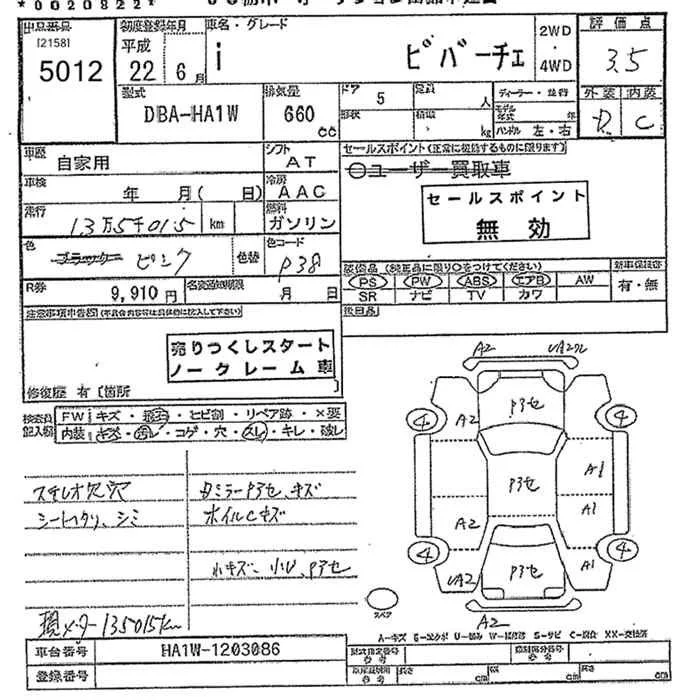 *0020822*
出品番号 初度登録年月 車名・グレード 2WD 評価点
[2158] 平成 i ビバーチェ ・ 3.5
5012 22 年 6 月 4WD
型式 排気量 ドア 5 定員 人 ディーラー・並行 外装 内装
DBA-HA1W 660 cc 形状 積載 kg モデル年式 年 C
ハンドル 左・右
車歴 自家用 シフト AT セールスポイント(正常に機能するものに限ります)
○ユーザー買取車
車検 年 月( 日) 冷房 AAC セールスポイント
走行 13万5千015 km 燃料 ガソリン 無効
色 ブラック ピンク 色替 色コード P38
装備品(純正品に限り○をつけてください) 新車保証書
R券 9,910円 名変通知期限 月 日 PS PW ABS エアB AW 有・無
SR ナビ TV カワ
注意事項申告欄(不具合内容等は具体的に記入して下さい) 後日品
売りつくしスタート
ノークレーム車
修復歴 有 [箇所
検査員記入欄 FW キズ・ ・ヒビ割・リペア跡・×要
内装 キズ・汚レ・コゲ・穴・スレ・キレ・破レ
ステレオ欠穴
シートスリ、シミ
ミラーP3セ キズ
ホイルCキズ
小キズ、小U、P3セ
A2
P3セ
4 A2 4
A1
P3セ
A2 A1
4 4
UA2 P3セ A1
スペア
A2
現メーター135015km
A-キズ E-エクボ U-凹み W-補修跡 S-サビ C-腐食 XX-交換済
車台番号 HA1W-1203086 型式指定番号 参考 類別区分番号 参考
登録番号 参考 長さ cm 幅 cm 高さ cm